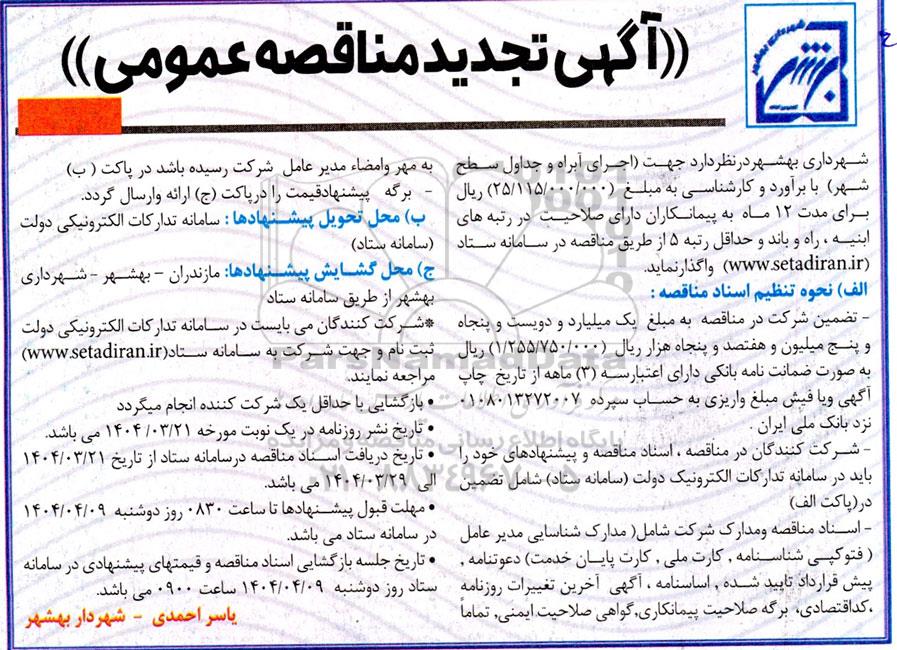 ((آگهی تجدید مناقصه عمومی))
شهرداری بهشهر
شهرداری بهشهر درنظر دارد جهت (اجرای آبراه و جداول سطح
شهر) با برآورد و کارشناسی به مبلغ (۲۵/۱۱۵/۰۰۰/۰۰۰) ریال
برای مدت ۱۲ ماه به پیمانکاران دارای صلاحیت در رتبه های
ابنیه ، راه و باند و حداقل رتبه ۵ از طریق مناقصه در سامانه ستاد
(www.setadiran.ir) واگذار نماید.
الف) نحوه تنظیم اسناد مناقصه :
- تضمین شرکت در مناقصه به مبلغ یک میلیارد و دویست و پنجاه
و پنج میلیون و هفتصد و پنجاه هزار ریال (۱/۲۵۵/۷۵۰/۰۰۰) ریال
به صورت ضمانت نامه بانکی دارای اعتبار سه (۳) ماهه از تاریخ چاپ
آگهی ویا فیش مبلغ واریزی به حساب سپرده ۰۱۰۸۰۱۳۲۷۲۰۰۷
نزد بانک ملی ایران .
- شرکت کنندگان در مناقصه ، اسناد مناقصه و پیشنهادهای خود را
باید در سامانه تدارکات الکترونیک دولت (سامانه ستاد) شامل تضمین
در(پاکت الف)
- اسناد مناقصه ومدارک شرکت شامل( مدارک شناسایی مدیر عامل
( فتوکپی شناسنامه , کارت ملی , کارت پایان خدمت) دعوتنامه ,
پیش قرارداد تایید شده , اساسنامه ، آگهی آخرین تغییرات روزنامه
،کداقتصادی، برگه صلاحیت پیمانکاری,گواهی صلاحیت ایمنی, تماماً
به مهر وامضاء مدیر عامل شرکت رسیده باشد در پاکت ( ب)
- برگه پیشنهادقیمت را درپاکت (ج) ارائه وارسال گردد.
ب) محل تحویل پیشنهادها : سامانه تدارکات الکترونیکی دولت
(سامانه ستاد)
ج) محل گشایش پیشنهادها: مازندران - بهشهر - شهرداری
بهشهر از طریق سامانه ستاد
*شرکت کنندگان می بایست در سامانه تدارکات الکترونیکی دولت
ثبت نام و جهت شرکت به سامانه ستاد(www.setadiran.ir)
مراجعه نمایند.
• بازگشایی با حداقل یک شرکت کننده انجام میگردد
• تاریخ نشر روزنامه در یک نوبت مورخه ۱۴۰۴/۰۳/۲۱ می باشد.
• تاریخ دریافت اسناد مناقصه درسامانه ستاد از تاریخ ۱۴۰۴/۰۳/۲۱
الی ۱۴۰۴/۰۳/۲۹ می باشد.
• مهلت قبول پیشنهادها تا ساعت ۰۸۳۰ روز دوشنبه ۱۴۰۴/۰۴/۰۹
در سامانه ستاد می باشد.
• تاریخ جلسه بازگشایی اسناد مناقصه و قیمتهای پیشنهادی در سامانه
ستاد روز دوشنبه ۱۴۰۴/۰۴/۰۹ ساعت ۰۹۰۰ می باشد.
یاسر احمدی - شهردار بهشهر
ParsNamadData
پایگاه اطلاع رسانی مناقصه و مزایده